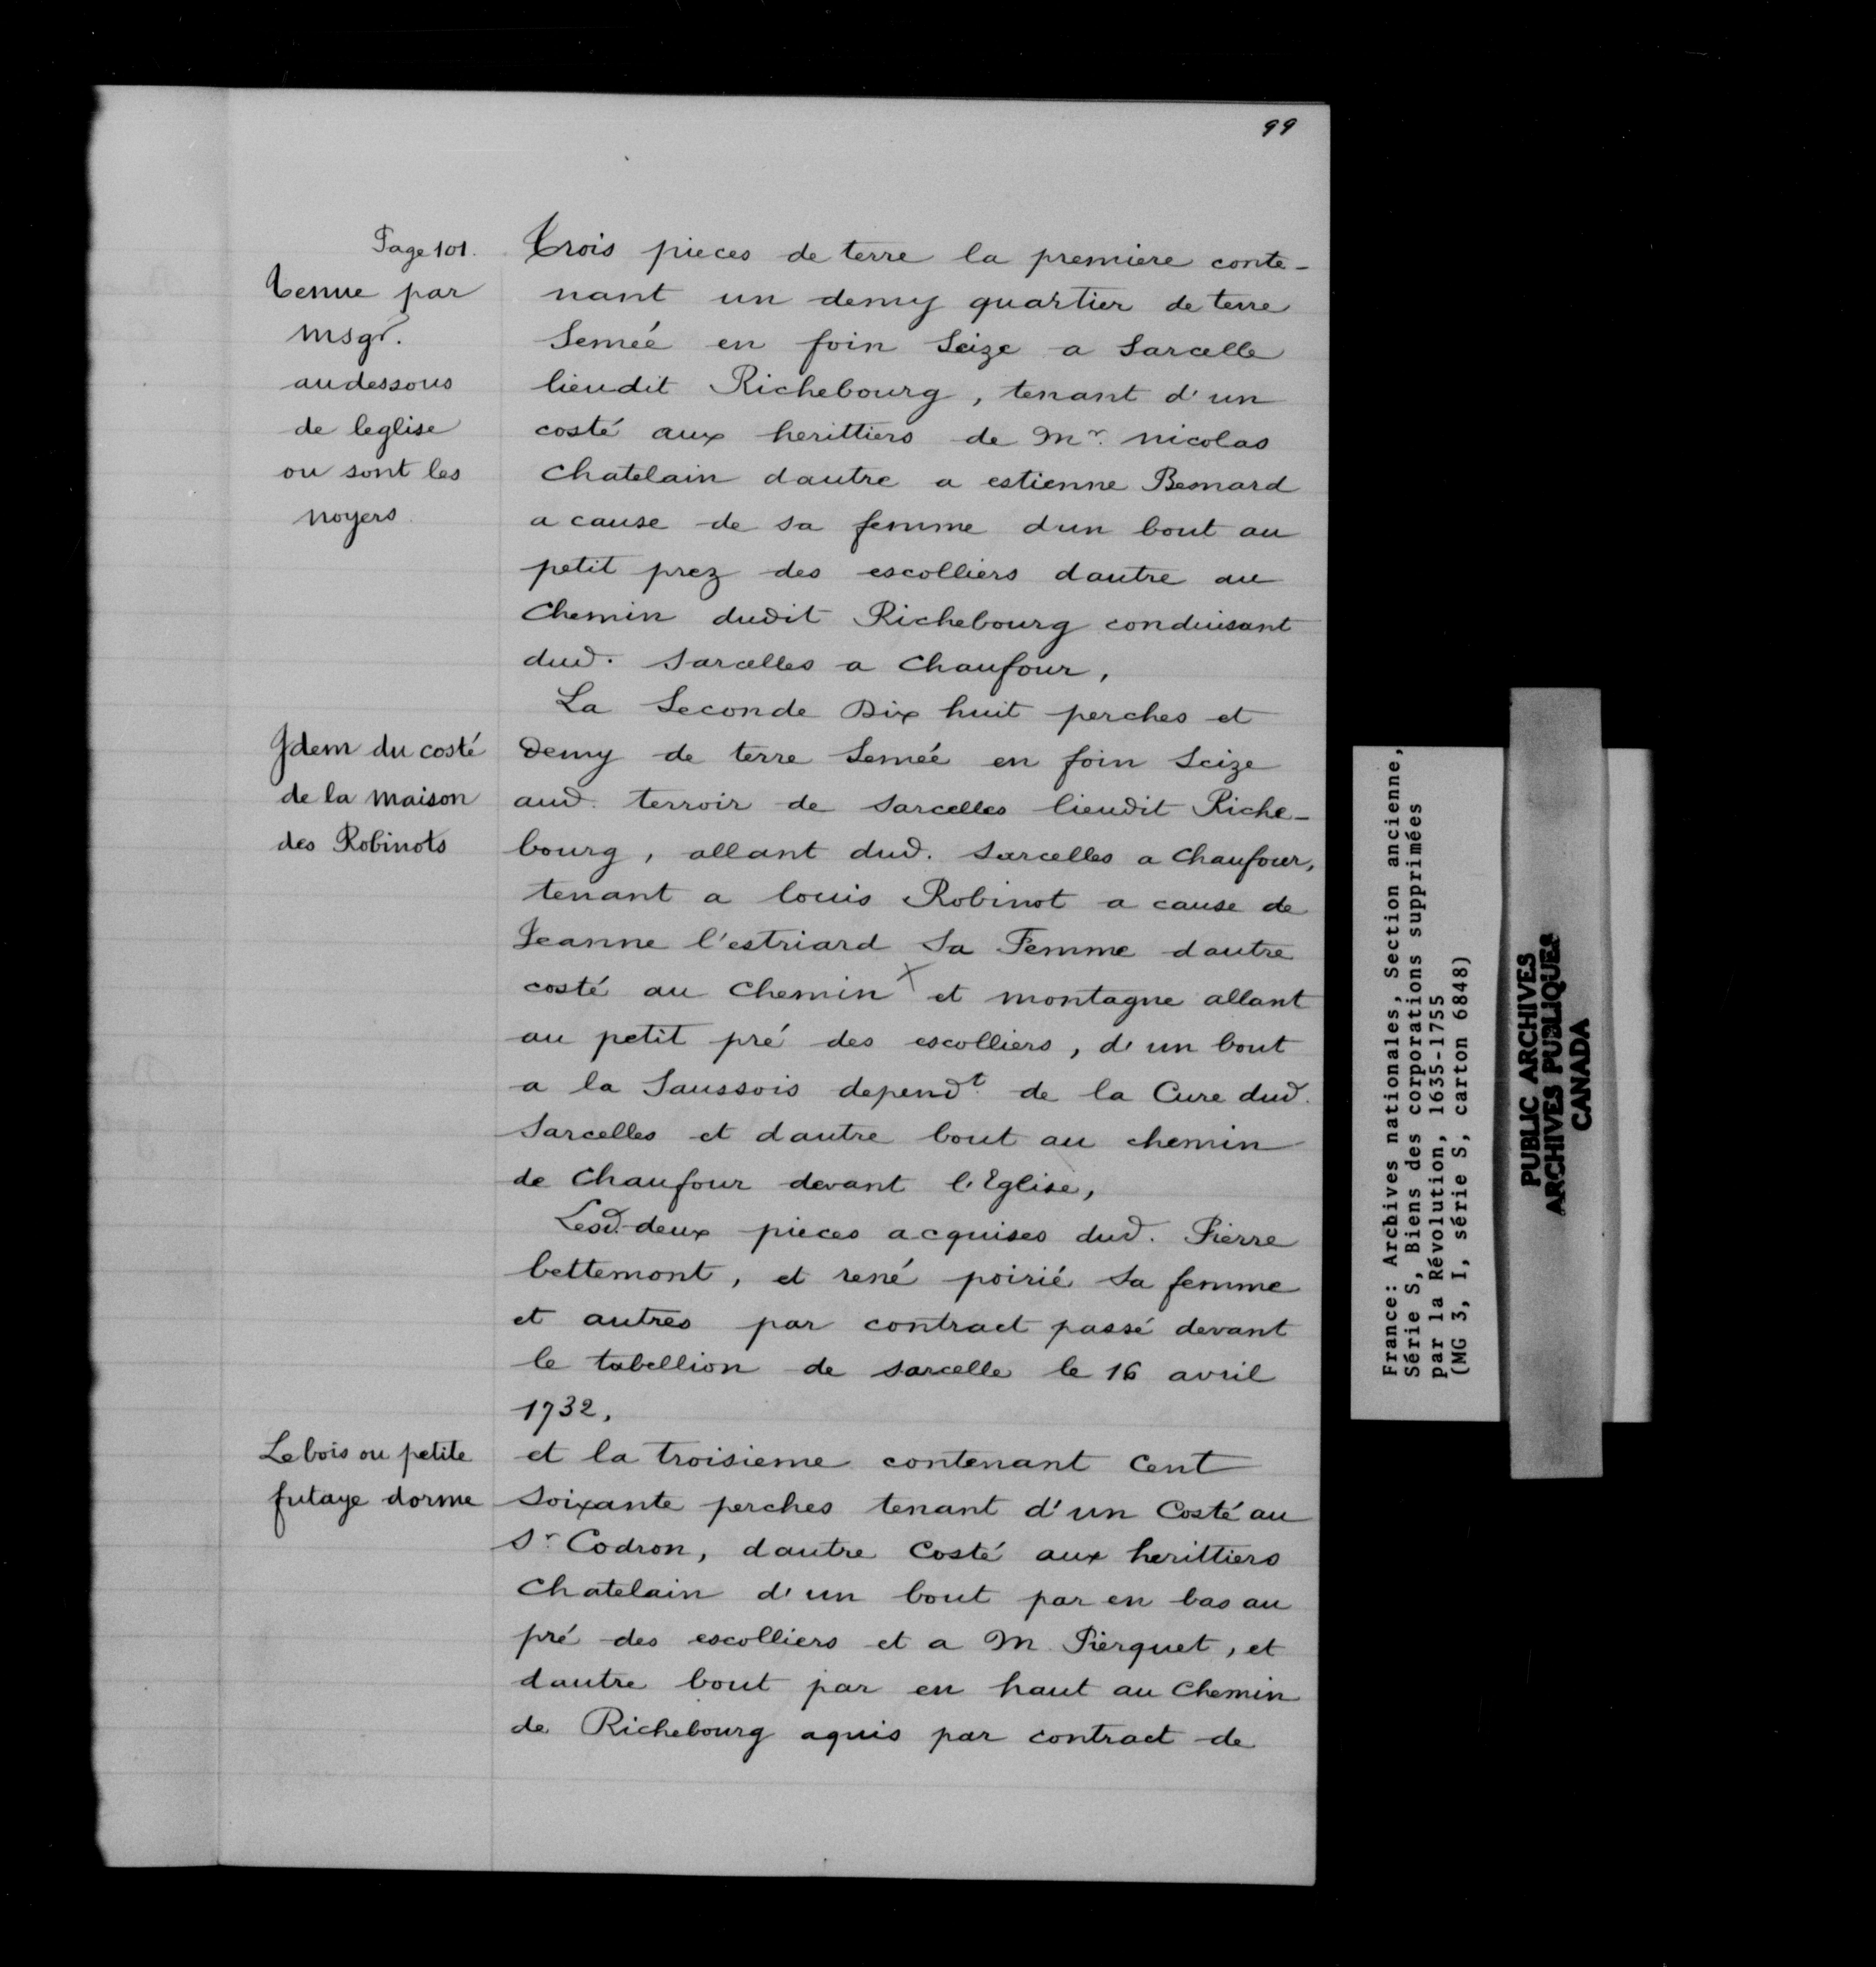 99
Page 101.
Tenue par
Msgr.
audessous
de leglise
ou sont les
noyers.
Trois pieces de terre la premiere conte-
nant un demy quartier de terre
Semeé en foin Seize a Sarcelle
lieudit Richebourg, tenant d'un
costé aux herittiers de Mr. nicolas
Chatelain dautre a estienne Besnard
a cause de sa femme dun bout au
petit prez des escolliers dautre au
Chemin dudit Richebourg conduisant
dud. Sarcelles a Chaufour,
La Seconde Dix huit perches et
Idem du costé
de la maison
des Robinots
Demy de terre Semeé en foin Seize
aud. terroir de Sarcelles lieudit Riche-
bourg, allant dud. Sarcelles a Chaufour,
tenant a louis Robinot a cause de
Jeanne l'estriard Sa Femme dautre
costé au Chemin x et montagne allant
au petit pré des escolliers, d'un bout
a la Saussois dependt. de la Cure dud.
Sarcelles et dautre bout au chemin
de Chaufour devant l'Eglise,
Lesd. deux pieces acquises dud. Pierre
bettemont, et rené poirié Sa femme
et autres par contract passé devant
le tabellion de sarcelle le 16 avril
1732.
Le bois ou petite
futaye dorme
et la troisieme contenant Cent
Soixante perches tenant d'un Costé au
Sr. Codron, dautre Costé aux herittiers
Chatelain d'un bout par en bas au
pré des escolliers et a M. Pierquet, et
dautre bout par en haut au Chemin
de Richebourg aquis par contract de
France: Archives nationales, Section ancienne,
Série S, Biens des corporations supprimées
par la Révolution, 1635-1755
(MG 3, I, série S, carton 6848)
PUBLIC ARCHIVES
ARCHIVES PUBLIQUES
CANADA